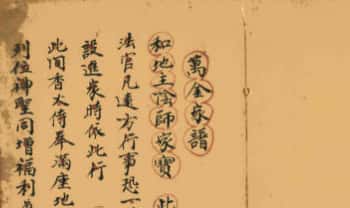 萬金家譜
和地主陰師家寶 此
法官凡遠方行事恐一
設進表將依此行
此间香火侍奉滿座地
列位神聖同增福利